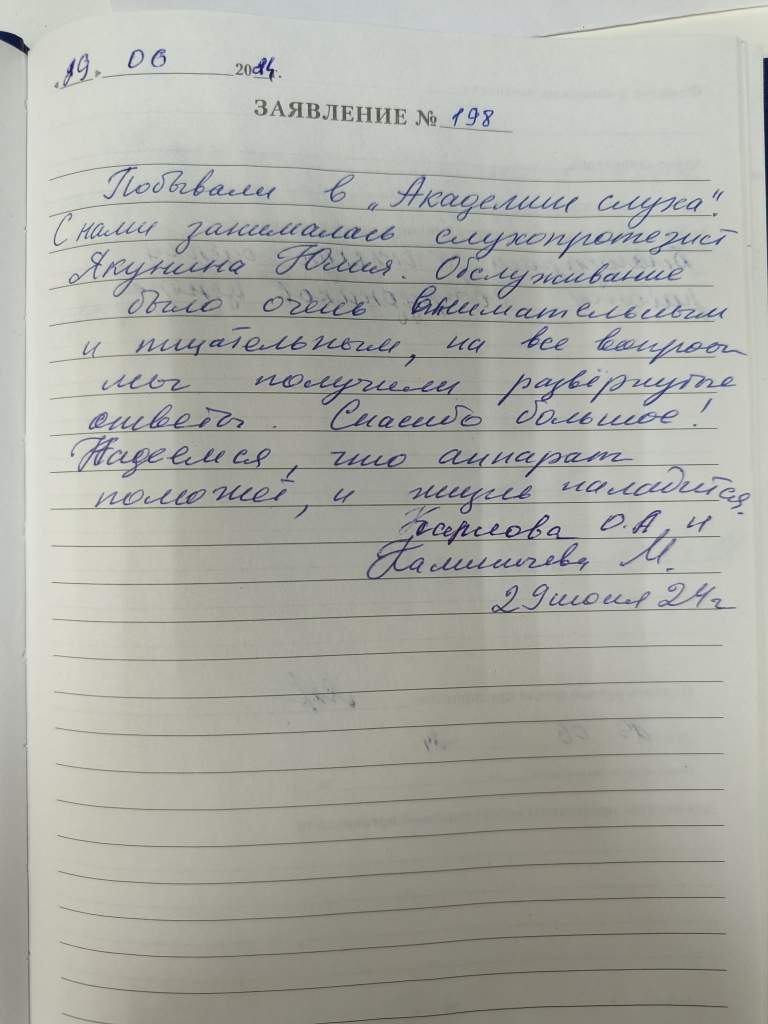 «19» 06 2024г.
ЗАЯВЛЕНИЕ № 198
Побывали в „Академии слуха".
С нами занималась слухопротезист
Якунина Юлия. Обслуживание
было очень внимательным
и тщательным, на все вопросы
мы получили развёрнутые
ответы. Спасибо большое!
Надеемся, что аппарат
поможет, и жизнь наладится.
Карлова О.А. и
Калиничева М.
29 июня 24г